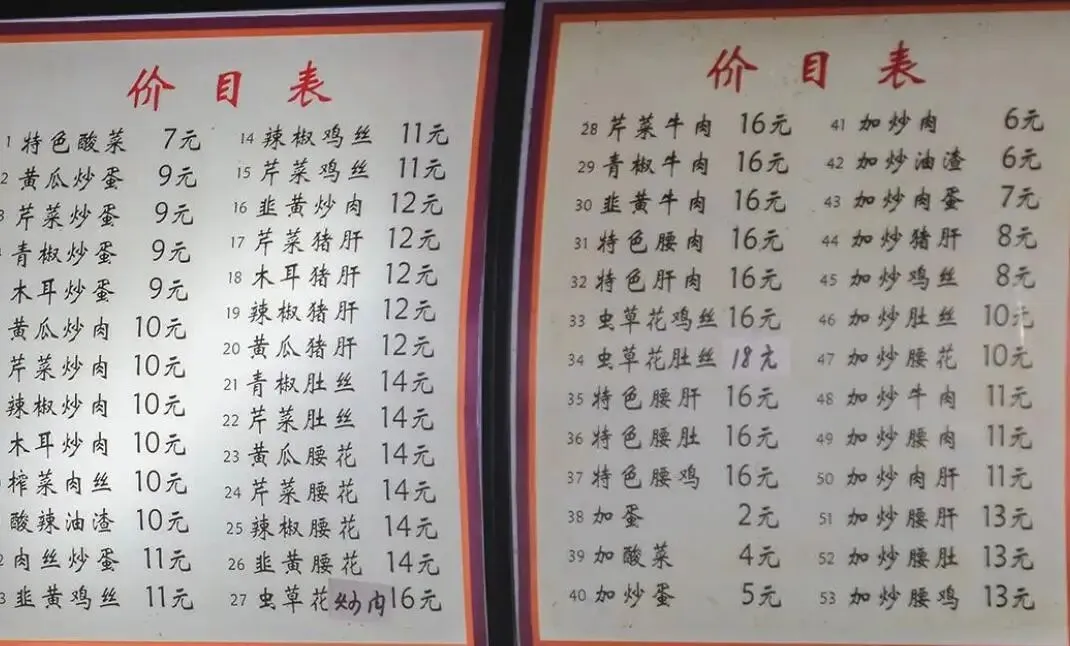 价目表
1 特色酸菜 7元
2 黄瓜炒蛋 9元
3 芹菜炒蛋 9元
青椒炒蛋 9元
木耳炒蛋 9元
黄瓜炒肉 10元
芹菜炒肉 10元
辣椒炒肉 10元
木耳炒肉 10元
榨菜肉丝 10元
酸辣油渣 10元
2 肉丝炒蛋 11元
3 韭黄鸡丝 11元
14 辣椒鸡丝 11元
15 芹菜鸡丝 11元
16 韭黄炒肉 12元
17 芹菜猪肝 12元
18 木耳猪肝 12元
19 辣椒猪肝 12元
20 黄瓜猪肝 12元
21 青椒肚丝 14元
22 芹菜肚丝 14元
23 黄瓜腰花 14元
24 芹菜腰花 14元
25 辣椒腰花 14元
26 韭黄腰花 14元
27 虫草花炒肉 16元
价目表
28 芹菜牛肉 16元
29 青椒牛肉 16元
30 韭黄牛肉 16元
31 特色腰肉 16元
32 特色肝肉 16元
33 虫草花鸡丝 16元
34 虫草花肚丝 18元
35 特色腰肝 16元
36 特色腰肚 16元
37 特色腰鸡 16元
38 加蛋 2元
39 加酸菜 4元
40 加炒蛋 5元
41 加炒肉 6元
42 加炒油渣 6元
43 加炒肉蛋 7元
44 加炒猪肝 8元
45 加炒鸡丝 8元
46 加炒肚丝 10元
47 加炒腰花 10元
48 加炒牛肉 11元
49 加炒腰肉 11元
50 加炒肉肝 11元
51 加炒腰肝 13元
52 加炒腰肚 13元
53 加炒腰鸡 13元